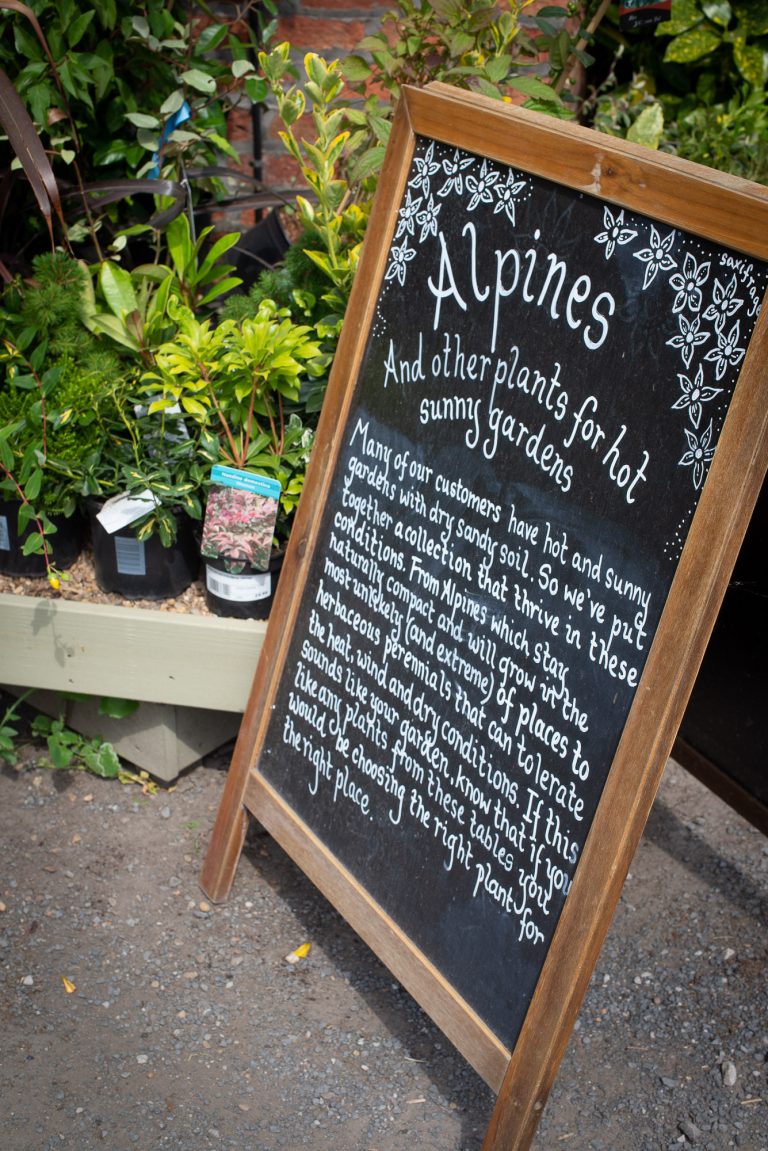 saxifrage
Alpines
And other plants for hot
sunny gardens
Many of our customers have hot and sunny
gardens with dry sandy soil. So we've put
together a collection that thrive in these
conditions. From Alpines which stay
naturally compact and will grow in the
most unlikely (and extreme) of places to
herbaceous perennials that can tolerate
the heat, wind and dry conditions. If this
sounds like your garden, know that if you
like any plants from these tables you
would be choosing the right plant for
the right place.
Nandina domestica